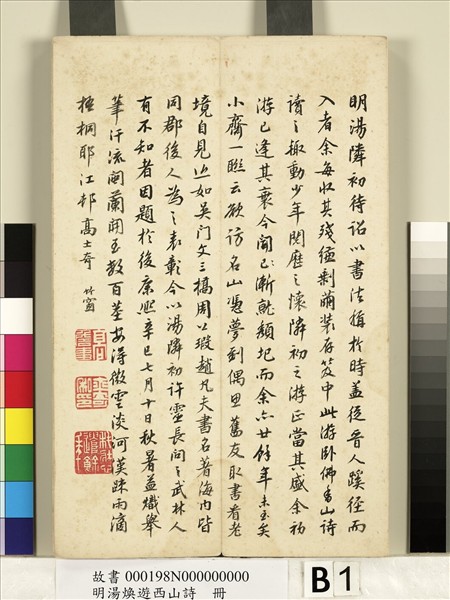 明湯隣初待詔以書法擅於時蓋從晉人蹊徑而
入者余每收其殘縑剩繭裝存笈中此游卧佛香山詩
讀之輙動少年閱歷之懷隣初之游正當其盛余初
游已逢其衰今聞已漸就頽圯而余亦廿餘年未至矣
小齋一眺云欲訪名山憑夢到偶思舊友取書看老
境自見近如吳門文三橋周公瑕趙凡夫書名著海內皆
同郡後人為之表彰今以湯隣初許靈長問之武林人
有不知者因題於後康熙辛巳七月十日秋暑益熾舉
筆汗流闌蘭開至數百莖安得微雲淡河漢疎雨滴
梧桐耶江邨高士奇 竹窗
故書 000198N000000000
明湯煥遊西山詩 冊
B1